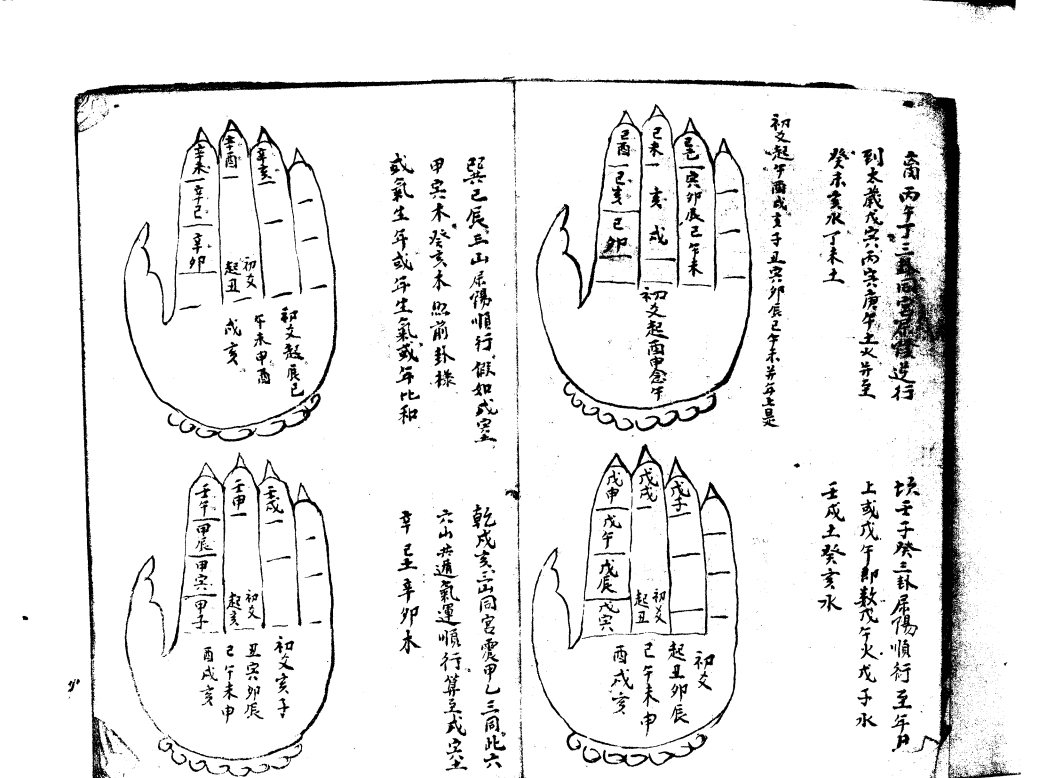 丙午丁三卦同宮屬陰逆行
到太歲戊寅丙寅庚午土火並至
癸未亥水丁未土
初爻起午酉戌亥子丑寅卯辰己午未并年上是
己酉
己亥
己卯
己未
亥
戌
寅卯辰己午未
初爻起酉申念午
坎壬子癸三卦屬陽順行至年月
上或戊午即数戊午火戊子水
壬戌土癸亥水
戊申
戊午
戊辰
戊寅
戊戌
戊子
初爻
起丑
初爻
起丑卯辰
己午未申
酉戌亥
巽己辰三山屬陽順行假如戊寅土
甲寅木癸亥木照前卦樣
或氣生年或年生氣或年比和
辛未
辛己
辛卯
辛酉
辛亥
初爻
起丑
初爻起辰己
午未申酉
戌亥
乾戌亥三山同宮震甲乙三同此六
六山共通氣運順行算至戊寅土
辛己土辛卯木
壬午
甲辰
甲寅
甲子
壬申
壬戌
初爻
起亥
初爻亥子
丑寅卯辰
己午未申
酉戌亥